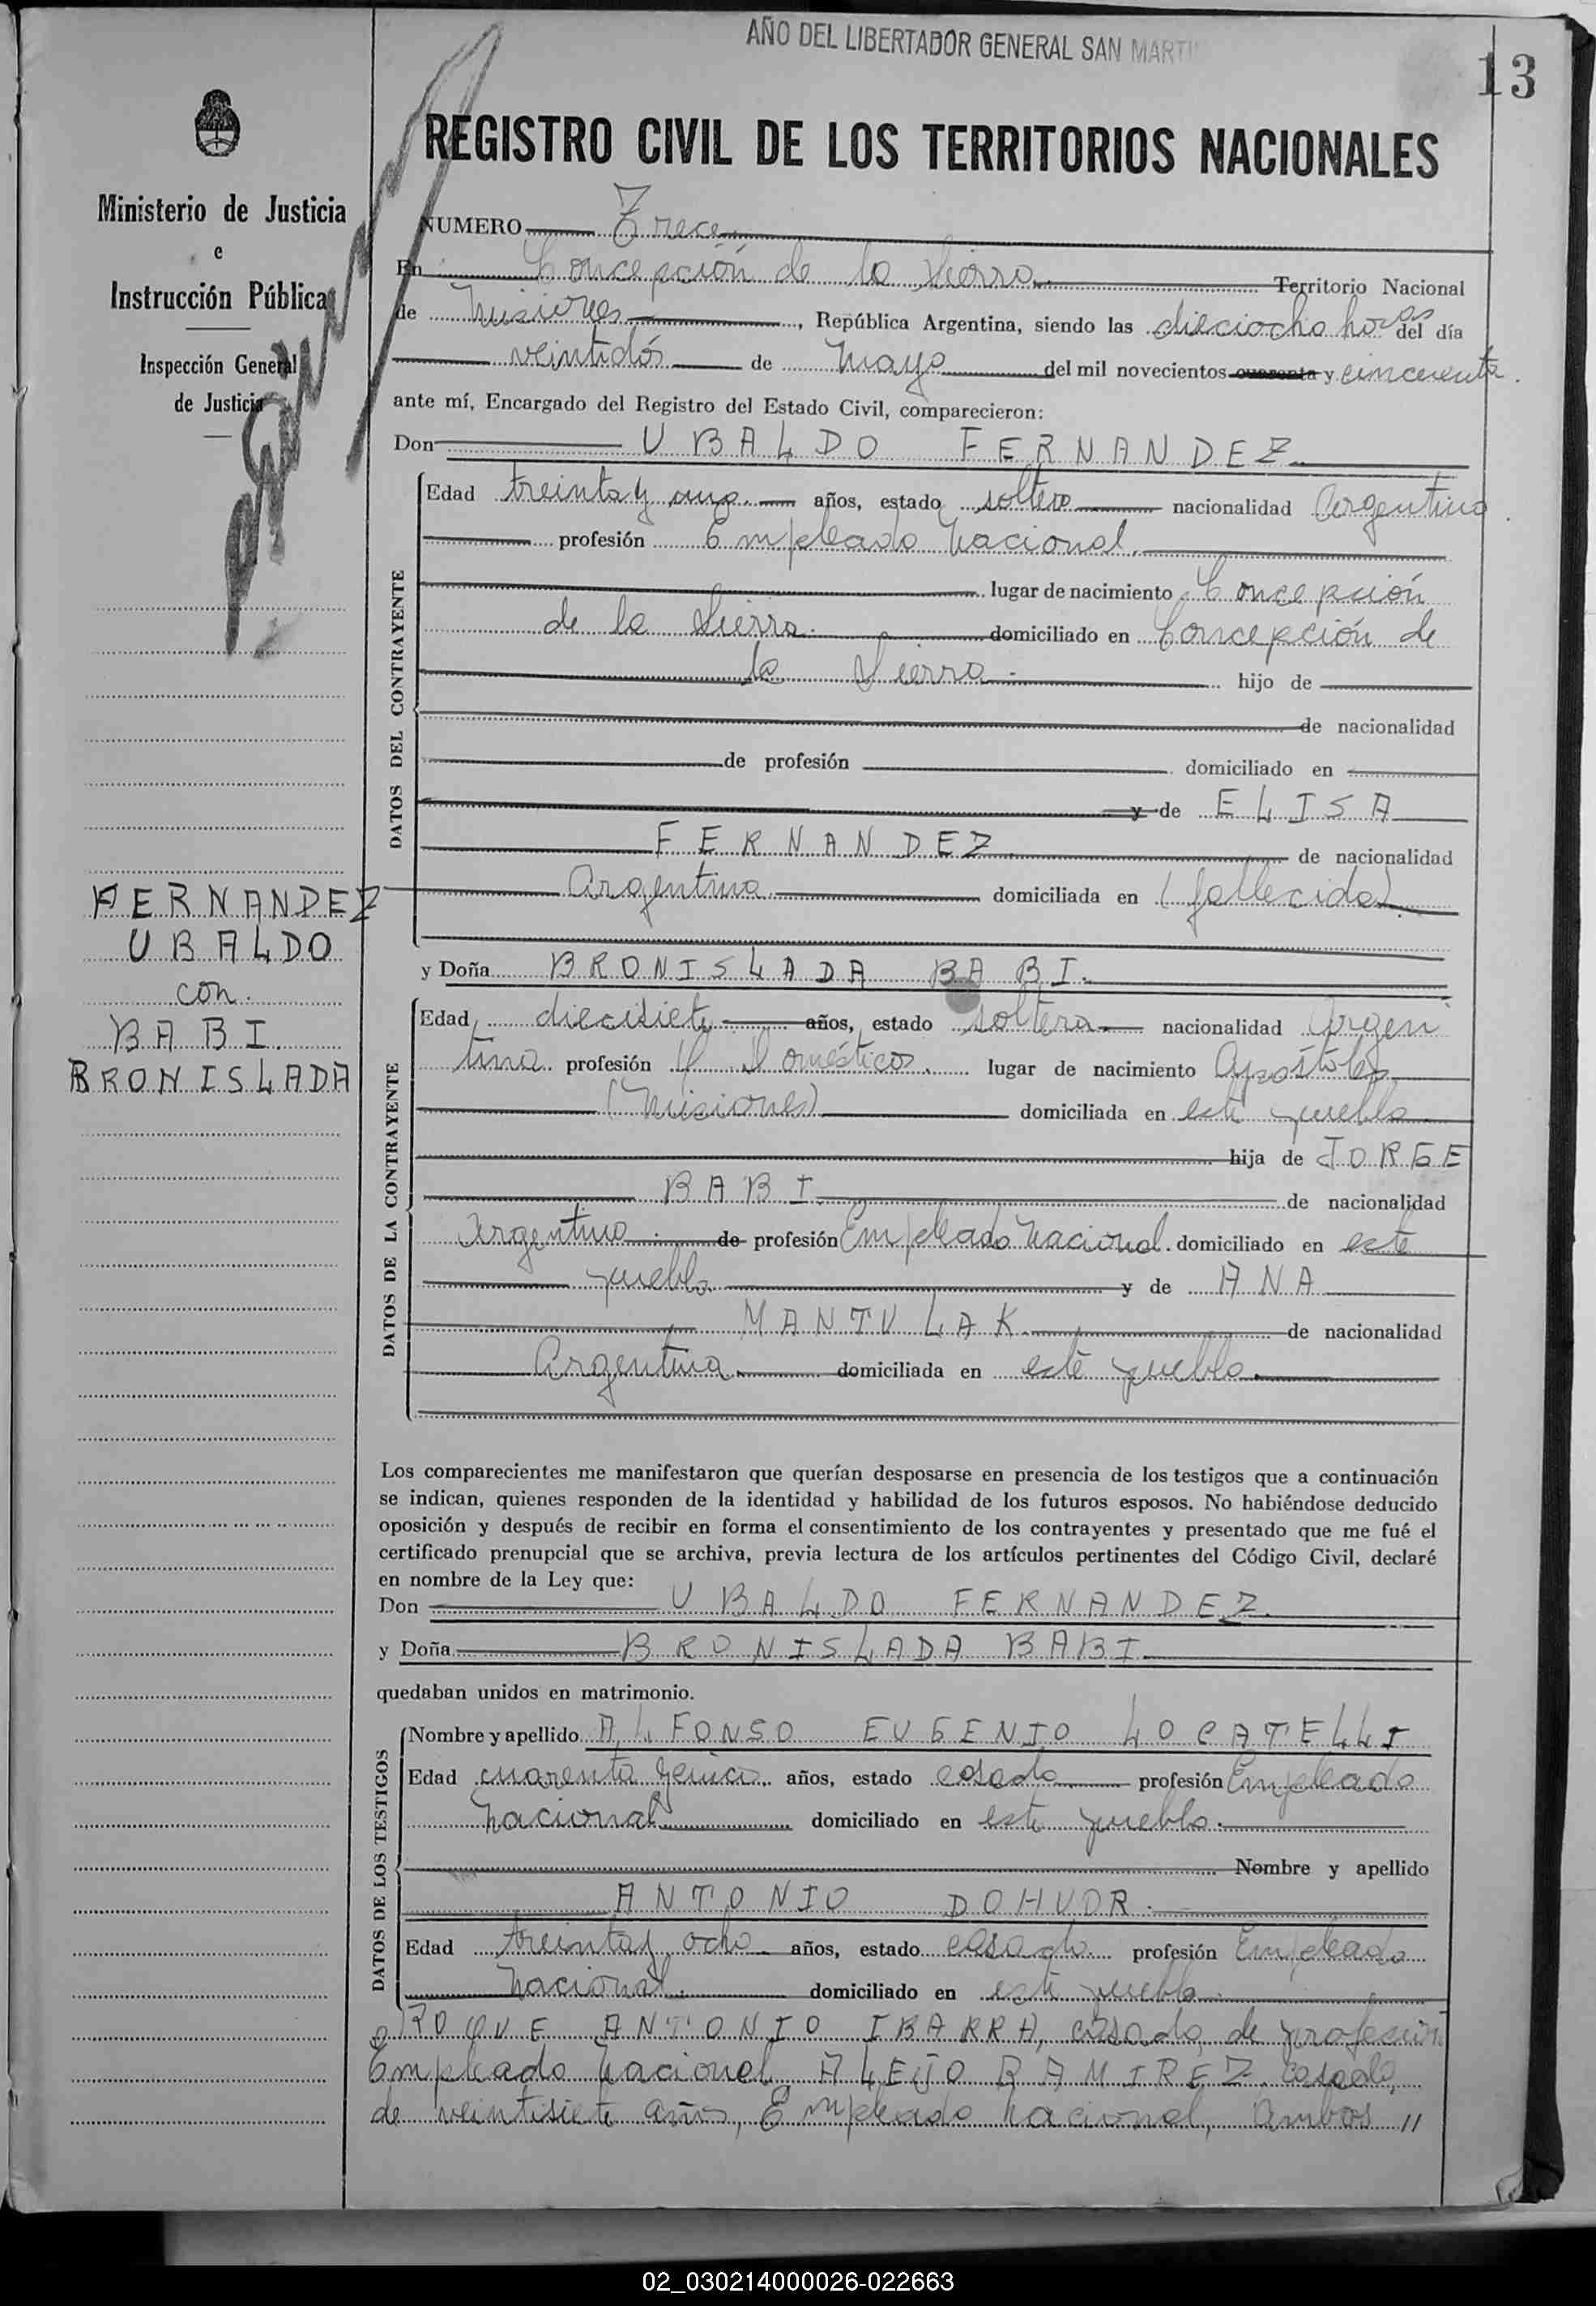 AÑO DEL LIBERTADOR GENERAL SAN MARTI
13
REGISTRO CIVIL DE LOS TERRITORIOS NACIONALES
Ministerio de Justicia
e
Instrucción Pública
Inspección General
de Justicia
FERNANDEZ
UBALDO
con
BABI
BRONISLADA
NUMERO Trece
En Concepción de la Sierra Territorio Nacional
de Misiones, República Argentina, siendo las dieciocho horas del día
veintidós de Mayo del mil novecientos cuarenta y cincuenta.
ante mí, Encargado del Registro del Estado Civil, comparecieron:
Don UBALDO FERNANDEZ
DATOS DEL CONTRAYENTE
Edad treinta y uno años, estado soltero nacionalidad Argentino
profesión Empleado Nacional
lugar de nacimiento Concepción
de la Sierra domiciliado en Concepción de
la Sierra hijo de
de nacionalidad
de profesión domiciliado en
y de ELISA
FERNANDEZ de nacionalidad
Argentina domiciliada en (fallecida)
y Doña BRONISLADA BABI.
DATOS DE LA CONTRAYENTE
Edad diecisiete años, estado soltera nacionalidad Argen
tina profesión Domésticos lugar de nacimiento Apóstoles
(Misiones) domiciliada en este pueblo
hija de JORGE
BABI de nacionalidad
Argentino de profesión Empleado Nacional. domiciliado en este
pueblo y de ANA
MANTULAK de nacionalidad
Argentina domiciliada en este pueblo.
Los comparecientes me manifestaron que querían desposarse en presencia de los testigos que a continuación
se indican, quienes responden de la identidad y habilidad de los futuros esposos. No habiéndose deducido
oposición y después de recibir en forma el consentimiento de los contrayentes y presentado que me fué el
certificado prenupcial que se archiva, previa lectura de los artículos pertinentes del Código Civil, declaré
en nombre de la Ley que:
Don UBALDO FERNANDEZ.
y Doña BRONISLADA BABI
quedaban unidos en matrimonio.
DATOS DE LOS TESTIGOS
Nombre y apellido ALFONSO EUGENIO LOCATELLI
Edad cuarenta y cinco años, estado casado profesión Empleado
Nacional domiciliado en este pueblo.
Nombre y apellido
ANTONIO DOHUOR.
Edad treinta y ocho años, estado casado profesión Empleado
Nacional domiciliado en este pueblo
ROQUE ANTONIO IBARRA, casado, de profesión
Empleado Nacional, ALEJO RAMIREZ, casado,
de veintisiete años, Empleado Nacional, ambos "
02_030214000026-022663